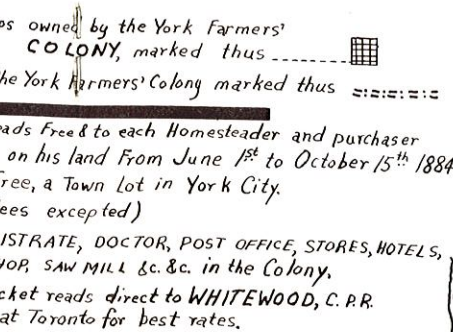 ps owned by the York Farmers'
COLONY, marked thus
the York Farmers' Colony marked thus
eads Free & to each Homesteader and purchaser
on his land From June 1st to October 15th 1884
ree, a Town Lot in York City.
ees excepted)
ISTRATE, DOCTOR, POST OFFICE, STORES, HOTELS,
HOP, SAW MILL &c. &c. in the Colony.
cket reads direct to WHITEWOOD, C. P. R.
at Toronto for best rates.